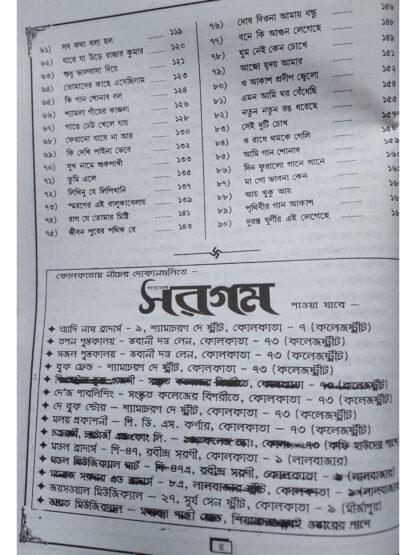 ৬১) সব কথা বলা হল ......... ১১৯
৬২) যারে যা উড়ে রাজার কুমার ......... ১২০
৬৩) শুধু ভালবাসা দিয়ে ......... ১২১
৬৪) তোমাদের কাছে এসেছিলাম ......... ১২৩
৬৫) কি গান শোনাব বল ......... ১২৪
৬৬) শ্যামলা গাঁয়ের কাজলা ......... ১২৬
৬৭) গাঙে ঢেউ খেলে যায় ......... ১২৮
৬৮) ফেরানো যাবে না আর ......... ১৩০
৬৯) কি দেখি পাইনা ভেবে ......... ১৩২
৭০) সুখ নামে শুকপাখী ......... ১৩৩
৭১) তুমি এলে ......... ১৩৫
৭২) লিখিনু যে লিপিখানি ......... ১৩৭
৭৩) স্মরণের এই বালুকাবেলায় ......... ১৩৯
৭৪) রাগ যে তোমার মিষ্টি ......... ১৪১
৭৫) জীবন পুরের পথিক রে ......... ১৪৩
৭৬) দোষ দিওনা আমায় বন্ধু ......... ১৪৬
৭৭) বনে কি আগুন লেগেছে ......... ১৪৮
৭৮) ঘুম নেই কেন চোখে
৭৯) আজো হৃদয় আমার
৮০) ও আকাশ প্রদীপ জ্বেলো
৮১) এমন আমি ঘর বেঁধেছি
৮২) নতুন নতুন রঙ ধরেছে
৮৩) সেই দুটি চোখ
৮৪) ও রাধে থমকে গেলি
৮৫) আমি গান শোনাব
৮৬) দিন ফুরালো গানে গানে
৮৭) মা গো ভাবনা কেন
৮৮) আয় খুকু আয়
৮৯) পৃথিবীর গান আকাশ
৯০) দুরন্ত ঘূর্ণীর এই লেগেছে
কোলকাতায় নীচের দোকানগুলিতে –
সরগম পাওয়া যাবে –
✦ আদি নাথ ব্রাদার্স - ৯, শ্যামাচরণ দে স্ট্রীট, কোলকাতা - ৭ (কলেজস্ট্রীট)
✦ তপন পুস্তকালয় - ভবানী দত্ত লেন, কোলকাতা - ৭৩ (কলেজস্ট্রীট)
✦ সজল পুস্তকালয় - ভবানী দত্ত লেন, কোলকাতা - ৭৩ (কলেজস্ট্রীট)
✦ বুক ফ্রেন্ড - শ্যামাচরণ দে স্ট্রীট, কোলকাতা - ৭৩ (কলেজস্ট্রীট)
✦ দে'জ পাবলিশিং - সংস্কৃত কলেজের বিপরীতে, কোলকাতা - ৭৩ (কলেজস্ট্রীট)
✦ দে বুক স্টোর - শ্যামাচরণ দে স্ট্রীট, কোলকাতা - ৭৩ (কলেজস্ট্রীট)
✦ মলয় প্রকাশনী - পি. ডি. এস. কর্ণার, কোলকাতা - ৭৩ (কলেজস্ট্রীট)
✦ মন্ডল ব্রাদার্স - পি-৪৭, রবীন্দ্র সরণী, কোলকাতা - ৯ (লালবাজার)
✦ মন্ডল মিউজিক্যাল মার্ট - পি-৪৭এ, রবীন্দ্র সরণী, কোলকাতা - ৯ (লালবাজার)
✦ জয়সওয়াল মিউজিক্যাল - ২৭, সূর্য সেন স্ট্রীট, কোলকাতা - ৯ (মীর্জাপুর)
8